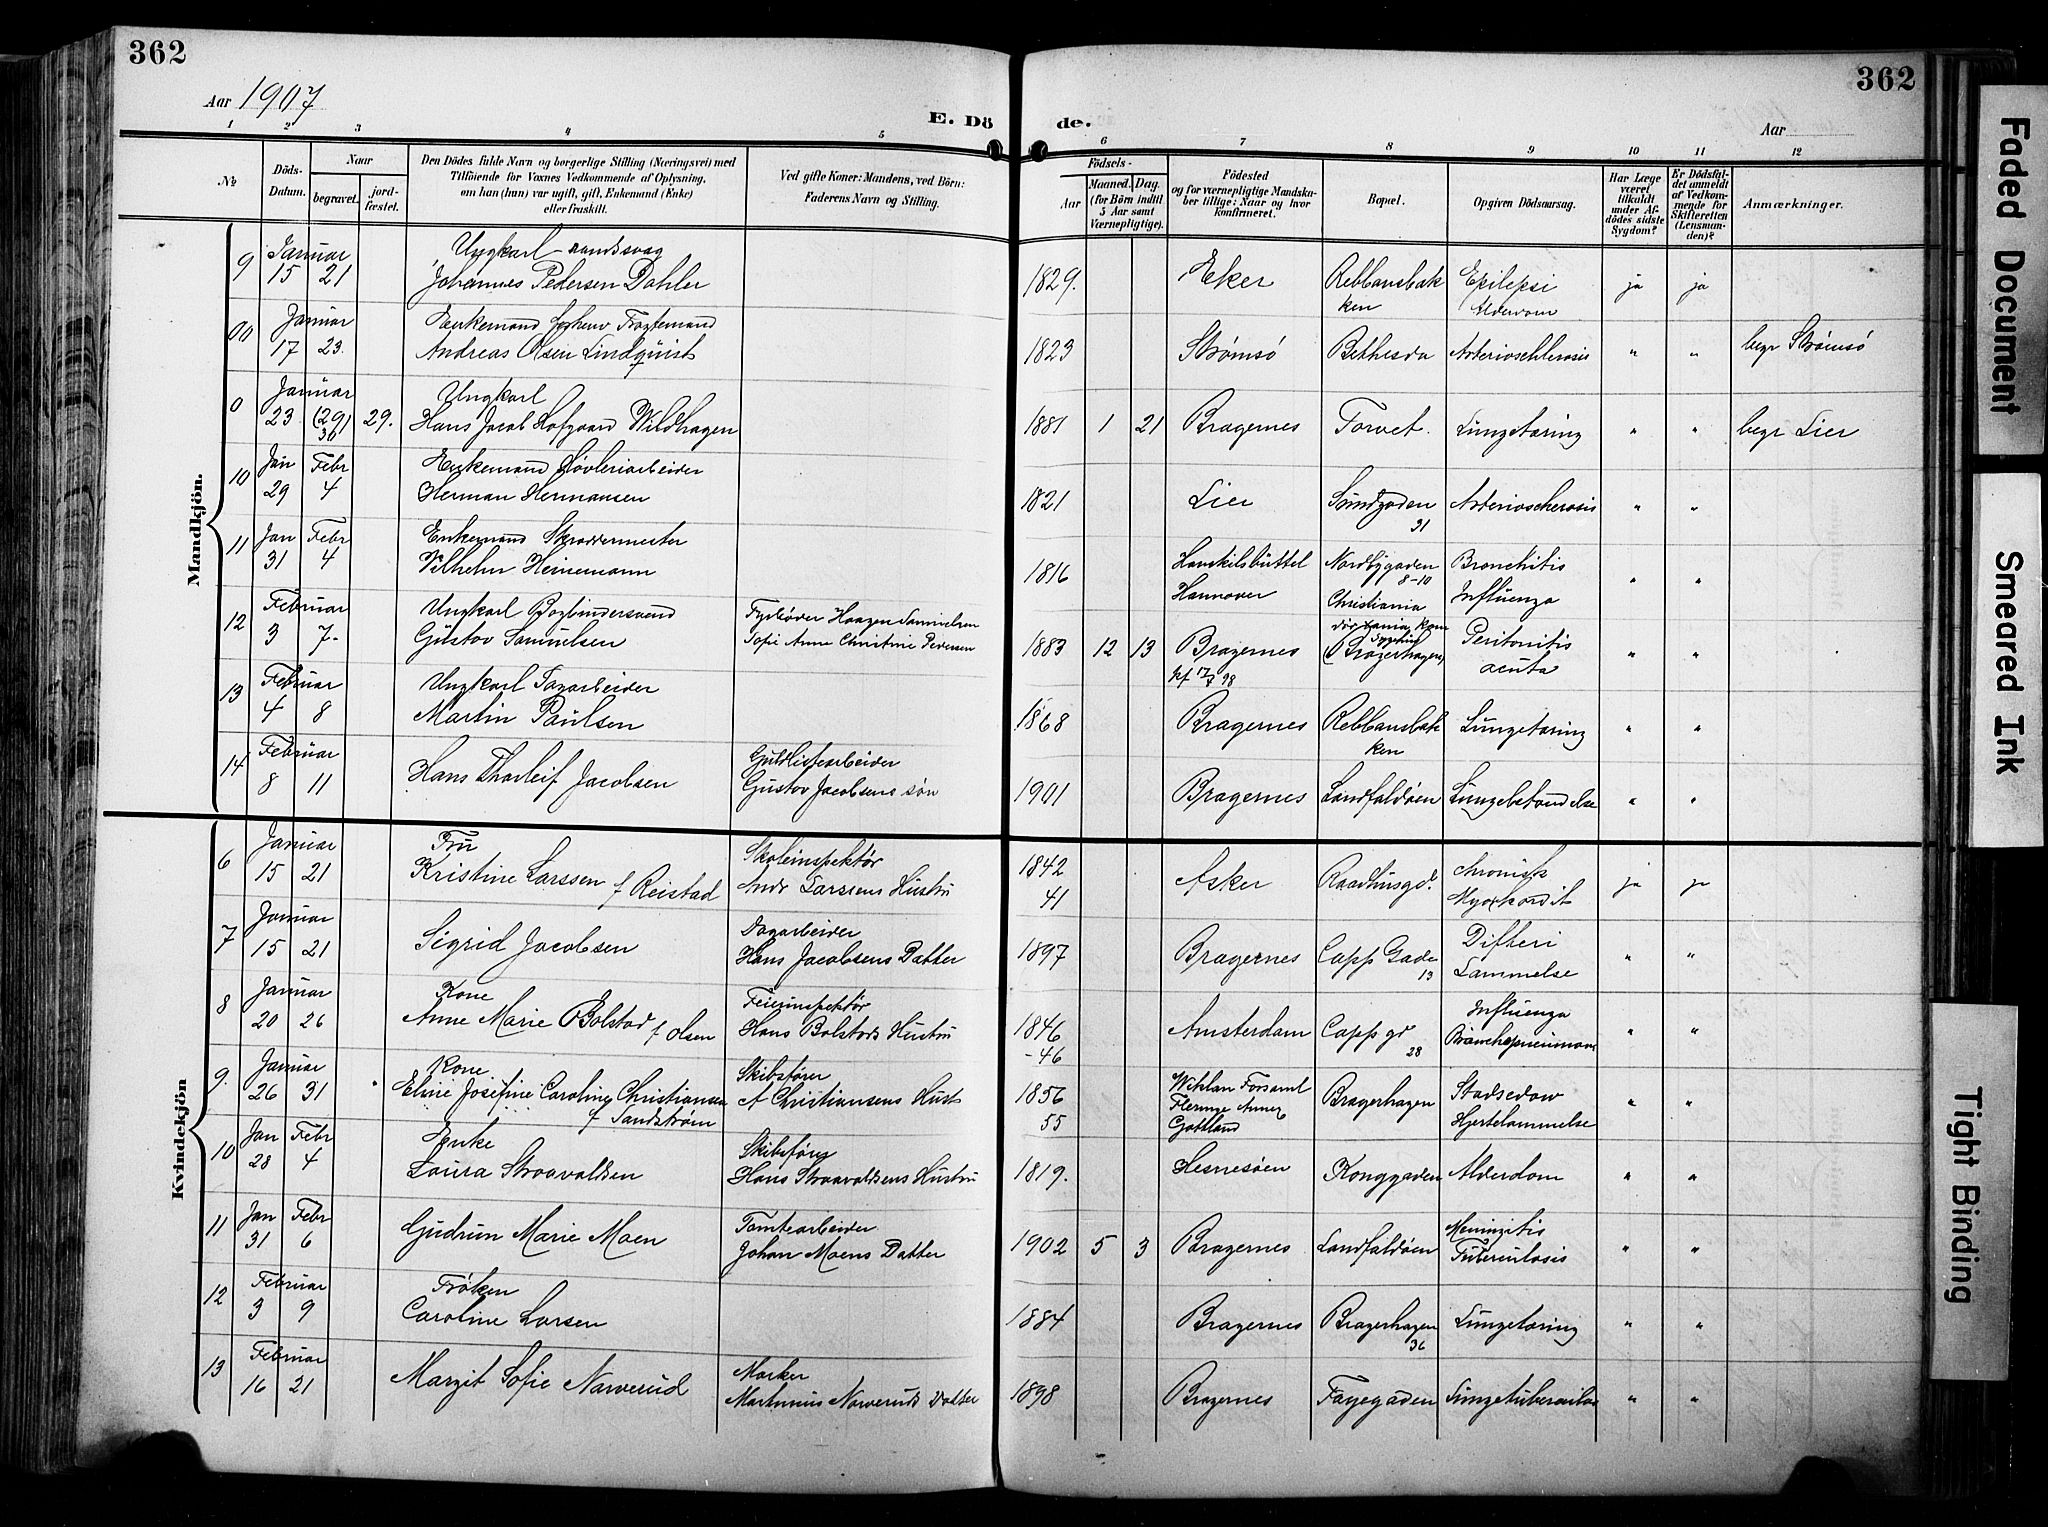 362
362
Aar 1907
Aar
E. Döde.
1 2 3 4 5 6 7 8 9 10 11 12
№
Döds-Datum.
Naar
begravet.
jord-fæstet.
Den Dödes fulde Navn og borgerlige Stilling (Næringsvei) med
Tilföiende for Voxnes Vedkommende af Oplysning,
om han (hun) var ugift, gift, Enkemand (Enke)
eller fraskilt.
Ved gifte Koner: Mandens, ved Börn:
Faderens Navn og Stilling.
Födsels-
Aar
Maaned. Dag.
(for Börn indtil
5 Aar samt
Værnepligtige).
Födested
og for værnepligtige Mandska-
ber tillige: Naar og hvor
konfirmeret.
Bopæl.
Opgiven Dödsaarsag.
Har Læge
været
tilkaldt
under Af-
dödes sidste
Sygdom?
Er Dödsfal-
det anmeldt
af Vedkom-
mende for
Skifteretten
(Lensman-
den)?
Anmærkninger.
Mandkjön.
9 Januar 15 21 Ungkarl
Johannes Pedersen Dahler 1829. Eker Rebbansbakken Epilepsi Alderdom ja ja
00 Januar 17 23. Enkemand Fragtemand
Andreas Olsen Lindquist 1823 Strømsö Bethesda Arterioschlerosis " " begr Strømsö
0 Januar 23 (29) 30 29. Ungkarl
Hans Jacob Hofgaard Wildhagen 1881 1 21 Bragernes Torvet. Lungetæring " " begr Lier
10 Jan 29 Febr 4 Enkemand Høvleriarbeider
Herman Hermansen 1821 Lier Sundgaden 31 Arterioscherosis " "
11 Jan 31 Febr 4 Enkemand Skræddermester
Vilhelm Heinemann 1816 Hankilsbüttel Hannover Nordbygaden 8-10 Bronchitis Influenza " "
12 Februar 3 7- Ungkarl Bogbindersvend
Gustav Samuelsen Fyrbøder Haagen Samuelsen
Sofie Anne Christine Pedersen 1883 12 13 Bragernes Christiania (Bragerhagen) Peritonitis acuta " "
13 Februar 4 8 Ungkarl Dagarbeider
Martin Paulsen 1868 Bragernes Rebbansbakken Lungetæring " "
14 Februar 8 11 Hans Thorleif Jacobsen Guldlistearbeider
Gustav Jacobsens søn 1901 Bragernes Landfaldøen Lungebetændelse " "
Kvindekjön
6 Januar 15 21 Fru
Kristine Larssen f Reistad Skoleinspektør
Andr Larssens Hustru 1842 41 Asker Raadhusgd. chronisk Myokardit ja ja
7 Januar 15 21 Sigrid Jacobsen Dagarbeider
Hans Jacobsens Datter 1897 Bragernes Capp Gade 13 Difteri Lammelse " "
8 Januar 20 26 Kone
Anne Marie Bolstad f Olsen Feierinspektør
Hans Bolstads Hustru 1846 -46 Amsterdam Capp gd 28 Influenza " "
9. Januar 26 31 " Kone
Eline Josefine Caroline Christiansen
f Sandstrøm Skibsfører
A Christiansens Hust 1856 55 Gottland Bragerhagen Hjertelammelse " "
10 Jan 28 Febr 4 Enke
Laura Straavaldsen Skibsfører
Hans Straavaldsens Hustru 1819. Hesnesøen Konggaden Alderdom " "
11 Jan 31 Febr 6 Gudrun Marie Moen Tomtearbeider
Johan Moens Datter 1902 5 3 Bragernes Landfaldøen Meningitis Tuberculosis " "
12 Februar 3 9 Frøken
Caroline Larsen 1884 Bragernes Bragerhagen 36 Lungetæring " "
13 Februar 16 21 Margit Sofie Narverud Murker
Martinius Narveruds Datter 1898 Bragernes Fayegaden Lungetuberculos " "
Faded Document
Smeared Ink
Tight Binding